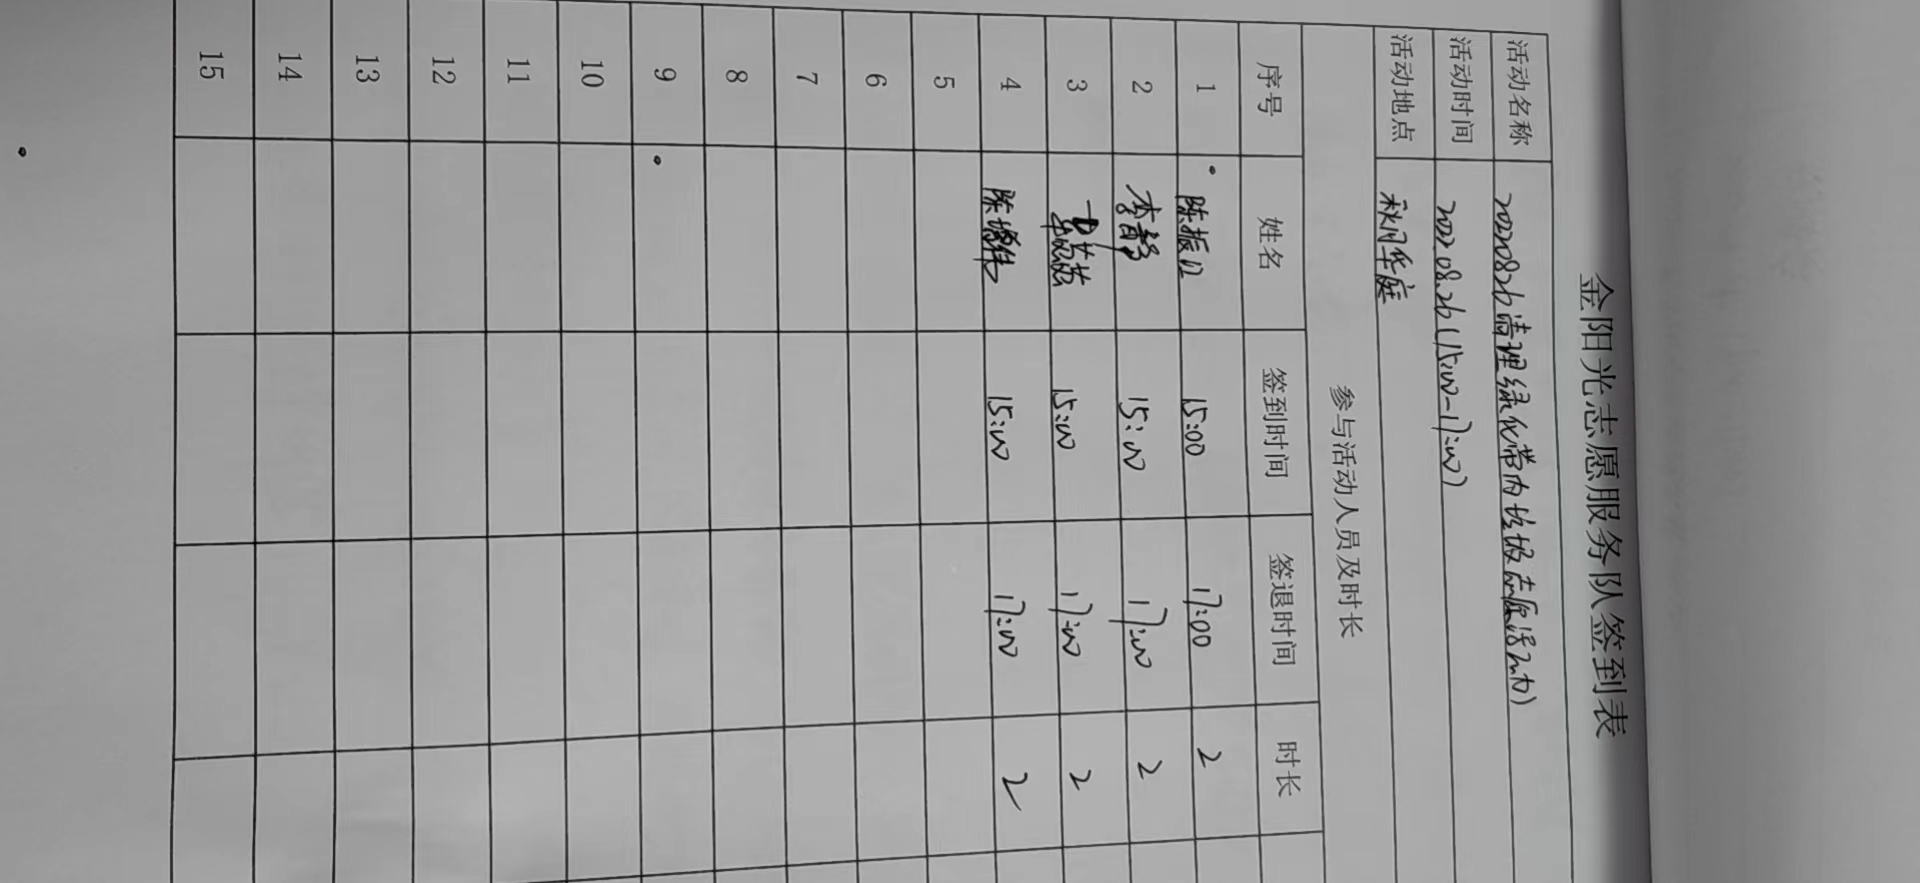 金阳光志愿服务队签到表
活动名称 20220826清理绿化带内垃圾志愿活动
活动时间 2022.08.26(15:00-17:00)
活动地点 秋月华庭
参与活动人员及时长
序号 姓名 签到时间 签退时间 时长
1 陈振江 15:00 17:00 2
2 李静 15:00 17:00 2
3 15:00 17:00 2
4 陈增伟 15:00 17:00 2
5
6
7
8
9
10
11
12
13
14
15